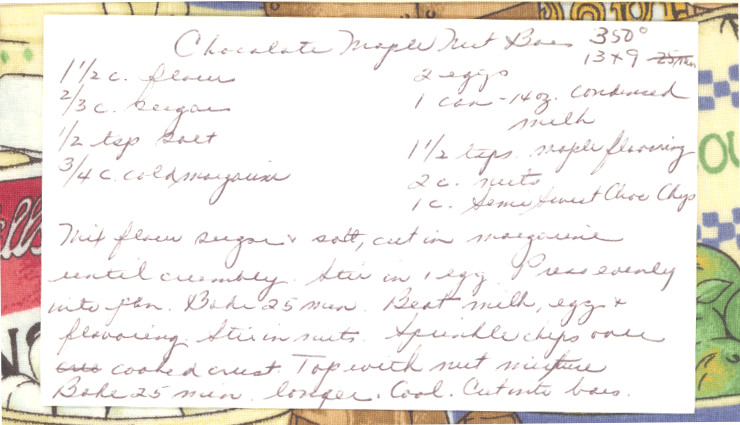 Chocolate Maple Nut Bars 350°
13 x 9 25 min
1 1/2 c. flour
2/3 c. sugar
1/2 tsp salt
3/4 c. cold margarine
2 eggs
1 can - 14 oz. condensed
milk
1 1/2 tsps. maple flavoring
2 c. nuts
1 c. Semi Sweet Choc Chips
Mix flour sugar & salt, cut in margarine
until crumbly. Stir in 1 egg. Press evenly
into pan. Bake 25 min. Beat milk, egg &
flavoring. Stir in nuts. Sprinkle chips over
cooked crust. Top with nut mixture
Bake 25 min. longer. Cool. Cut into bars.